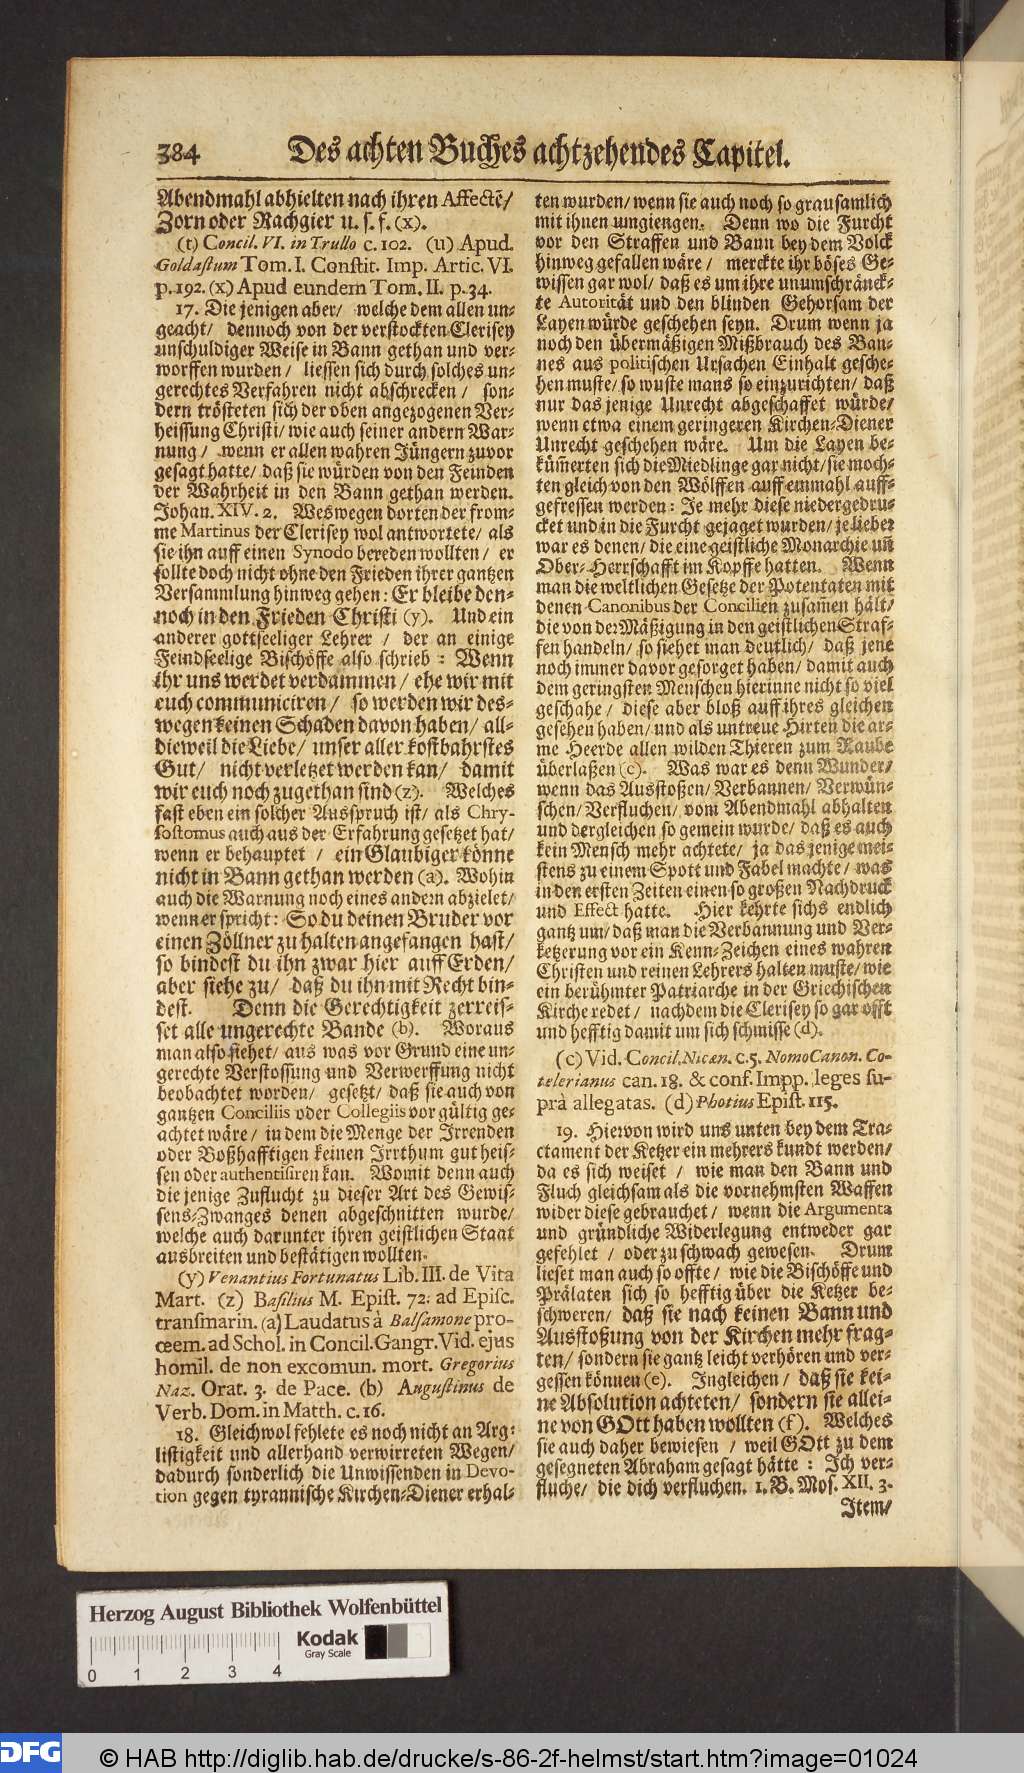 384 Des achten Buches achtzehendes Capitel.
Abendmahl abhielten nach ihren Affectē/
Zorn oder Rachgier u. s. f. (x).
(t) Concil. VI. in Trullo c. 102. (u) Apud.
Goldastum Tom. I. Constit. Imp. Artic. VI.
p. 192. (x) Apud eundem Tom. II. p. 34.
17. Die jenigen aber/ welche dem allen un-
geacht/ dennoch von der verstockten Clerisey
unschuldiger Weise in Bann gethan und ver-
worffen wurden/ liessen sich durch solches un-
gerechtes Verfahren nicht abschrecken/ son-
dern trösteten sich der oben angezogenen Ver-
heissung Christi/ wie auch seiner andern War-
nung/ wenn er allen wahren Jüngern zuvor
gesagt hatte/ daß sie würden von den Feinden
der Wahrheit in den Bann gethan werden.
Johan. XIV. 2. Weswegen dorten der from-
me Martinus der Clerisey wol antwortete/ als
sie ihn auff einen Synodo bereden wollten/ er
sollte doch nicht ohne den Frieden ihrer gantzen
Versammlung hinweg gehen: Er bleibe den-
noch in den Frieden Christi (y). Und ein
anderer gottseeliger Lehrer/ der an einige
Feindseelige Bischöffe also schrieb: Wenn
ihr uns werdet verdammen/ ehe wir mit
euch communiciren/ so werden wir des-
wegen keinen Schaden davon haben/ all-
dieweil die Liebe/ unser aller kostbahrstes
Gut/ nicht verletzet werden kan/ damit
wir euch noch zugethan sind (z). Welches
fast eben ein solcher Ausspruch ist/ als Chry-
sostomus auch aus der Erfahrung gesetzet hat/
wenn er behauptet/ ein Glaubiger könne
nicht in Bann gethan werden (a). Wohin
auch die Warnung noch eines andern abzielet/
wenn er spricht: So du deinen Bruder vor
einen Zöllner zu halten angefangen hast/
so bindest du ihn zwar hier auff Erden/
aber siehe zu/ daß du ihn mit Recht bin-
dest. Denn die Gerechtigkeit zerreis-
set alle ungerechte Bande (b). Woraus
man also siehet/ aus was vor Grund eine un-
gerechte Verstossung und Verwerffung nicht
beobachtet worden/ gesetzt/ daß sie auch von
gantzen Conciliis oder Collegiis vor gültig ge-
achtet wäre/ in dem die Menge der Irrenden
oder Boßhafftigen keinen Irrthum gut heis-
sen oder authentisiren kan. Womit denn auch
die jenige Zuflucht zu dieser Art des Gewis-
sens-Zwanges denen abgeschnitten wurde/
welche auch darunter ihren geistlichen Staat
ausbreiten und bestätigen wollten.
(y) Venantius Fortunatus Lib. III. de Vita
Mart. (z) Basilius M. Epist. 72: ad Episc.
transmarin. (a) Laudatus à Balsamone pro-
œem. ad Schol. in Concil. Gangr. Vid. ejus
homil. de non excomun. mort. Gregorius
Naz. Orat. 3. de Pace. (b) Augustinus de
Verb. Dom. in Matth. c. 16.
18. Gleichwol fehlete es noch nicht an Arg-
listigkeit und allerhand verwirreten Wegen/
dadurch sonderlich die Unwissenden in Devo-
tion gegen tyrannische Kirchen-Diener erhal-
ten wurden/ wenn sie auch noch so grausamlich
mit ihnen umgiengen. Denn wo die Furcht
vor den Straffen und Bann bey dem Volck
hinweg gefallen wäre/ merckte ihr böses Ge-
wissen gar wol/ daß es um ihre unumschränck-
te Autorität und den blinden Gehorsam der
Layen würde geschehen seyn. Drum wenn ja
noch den übermäßigen Mißbrauch des Ban-
nes aus politischen Ursachen Einhalt gesche-
hen muste/ so wuste mans so einzurichten/ daß
nur das jenige Unrecht abgeschaffet würde/
wenn etwa einem geringeren Kirchen-Diener
Unrecht geschehen wäre. Um die Layen be-
küm̄erten sich die Miedlinge gar nicht/ sie moch-
ten gleich von den Wölffen auff einmahl auff-
gefressen werden: Je mehr diese niedergedru-
cket und in die Furcht gejaget wurden/ je lieber
war es denen/ die eine geistliche Monarchie uñ
Ober-Herrschafft im Kopffe hatten. Wenn
man die weltlichen Gesetze der Potentaten mit
denen Canonibus der Concilien zusam̄en hält/
die von der Mäßigung in den geistlichen Straf-
fen handeln/ so siehet man deutlich/ daß jene
noch immer davor gesorget haben/ damit auch
dem geringsten Menschen hierinne nicht so viel
geschahe/ diese aber bloß auff ihres gleichen
gesehen haben/ und als untreue Hirten die ar-
me Heerde allen wilden Thieren zum Raube
überlaßen (c). Was war es denn Wunder/
wenn das Ausstoßen/ Verbannen/ Verwün-
schen/ Verfluchen/ vom Abendmahl abhalten
und dergleichen so gemein wurde/ daß es auch
kein Mensch mehr achtete/ ja das jenige mei-
stens zu einem Spott und Fabel machte/ was
in den ersten Zeiten einen so großen Nachdruck
und Effect hatte. Hier kehrte sichs endlich
gantz um/ daß man die Verbannung und Ver-
ketzerung vor ein Kenn-Zeichen eines wahren
Christen und reinen Lehrers halten muste/ wie
ein berühmter Patriarche in der Griechischen
Kirche redet/ nachdem die Clerisey so gar offt
und hefftig damit um sich schmisse (d).
(c) Vid. Concil. Nicæn. c. 5. NomoCanon. Co-
telerianus can. 18. & conf. Impp. leges su-
prà allegatas. (d) Photius Epist. 115.
19. Hiervon wird uns unten bey dem Tra-
ctament der Ketzer ein mehrers kundt werden/
da es sich weiset/ wie man den Bann und
Fluch gleichsam als die vornehmsten Waffen
wider diese gebrauchet/ wenn die Argumenta
und gründliche Widerlegung entweder gar
gefehlet/ oder zu schwach gewesen. Drum
lieset man auch so offte/ wie die Bischöffe und
Prälaten sich so hefftig über die Ketzer be-
schweren/ daß sie nach keinen Bann und
Ausstoßung von der Kirchen mehr frag-
ten/ sondern sie gantz leicht verhören und ver-
gessen können (e). Ingleichen/ daß sie kei-
ne Absolution achteten/ sondern sie allei-
ne von GOtt haben wollten (f). Welches
sie auch daher bewiesen/ weil GOtt zu dem
gesegneten Abraham gesagt hätte: Ich ver-
fluche/ die dich verfluchen. 1. B. Mos. XII. 3.
Item/
Herzog August Bibliothek Wolfenbüttel
Kodak
Gray Scale
0 1 2 3 4
DFG © HAB http://diglib.hab.de/drucke/s-86-2f-helmst/start.htm?image=01024